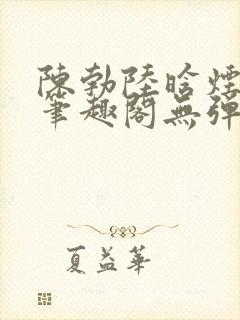 陳勃陸晗煙
筆趣閣無彈
夏益華